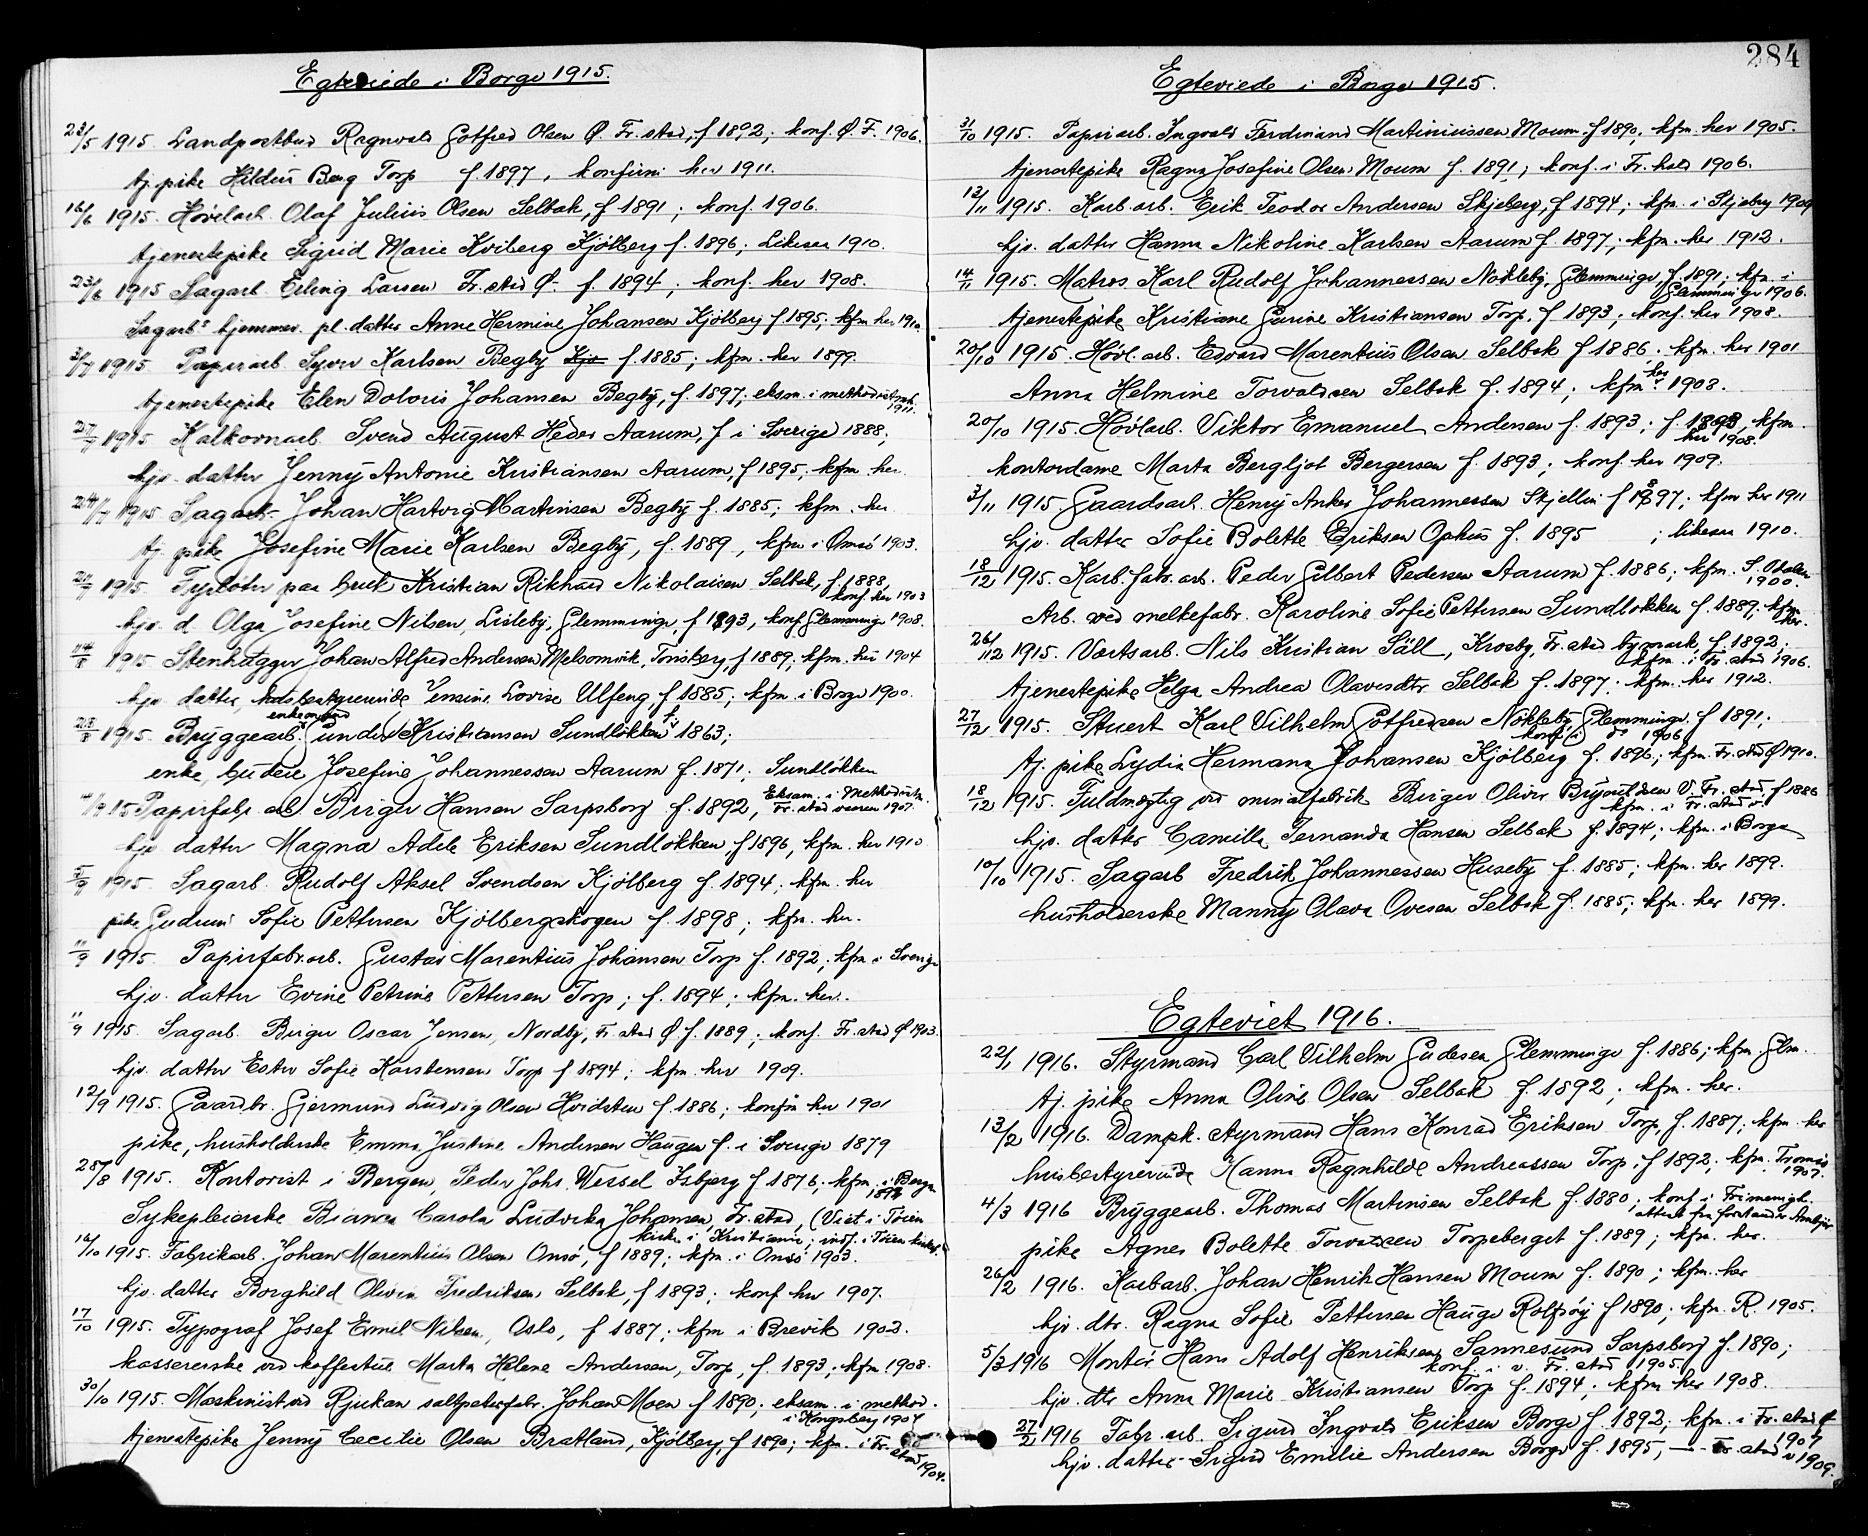 Egteviede i Borge 1915.
23/5 1915. Landpostbud Ragnvald Gotfred Olsen Ø. Fr.stad, f 1892; konf. Ø. F. 1906.
tj. pike Hildur Berg Torp f. 1897, konfirm. her 1911.
16/6 1915. Høvelarb. Olaf Julius Olsen Selbak, f 1891; konf. 1906.
tjenestepike Sigrid Marie Kviberg Kjölberg f. 1896; likesaa 1910.
23/6 1915 Sagarb. Erling Larsen Fr.stad Ø. f. 1894; konf. her 1908.
Sagarbs hjemmev. pl. datter Anne Hermine Johansen Kjölberg f. 1895; kfm her 1910
3/7 1915 Papirarb. Syver Karlsen Begby f. 1885; kfm. her 1899.
tjenestepike Elen Doloris Johansen Begby, f. 1897; eksam. i methodistmk. 1911.
27/7 1915 Kalkovnarb. Svend August Heder Aarum, f i Sverige 1888;
hjv. datter Jenny Antonie Kristiansen Aarum, f 1895, kfm her.
24/7 1915 Sagarb. Johan Hartvig Martinsen Begby f. 1885; kfm. her
tj. pike Josefine Marie Karlsen Begby, f. 1889, kfm i Onsö 1903.
1915. Fyrböter paa bruk Kristian Rikhard Nikolaisen Selbak, f. 1888, konf. her 1903
hjv. d. Olga Josefine Nilsen, Lisleby, Glemminge, f 1893, konf. Glemminge 1908.
14/8 1915 Stenhugger Johan Alfred Andersen Melsomvik, Tönsberg, f 1889, kfm. her 1904
hjv. datter, husbestyrerinde Jensine Lovise Ulfeng, f 1885; kfm i Borge 1900.
28/8 1915. Bryggearb. enkemand Gunder Kristiansen Sundlökken f. 1863;
enke, budeie Josefine Johannessen Aarum f. 1871; Sundlökken
15 Papirfabr. arb. Birger Hansen Sarpsborg f. 1892, Eksam. i Methodistm. Fr.stad vaaren 1907.
hjv. datter Magna Adele Eriksen Sundlökken, f 1896, kfm. her 1910
5/9 1915. Sagarb. Rudolf Aksel Svendsen Kjölberg f. 1894; kfm. her
pike Gudrun Sofie Pettersen Kjölbergskogen f. 1898; kfm. her.
11/9 1915. Papirfabr.arb. Gustav Marentius Johansen Torp f. 1892; kfm i Sverige
hjv. datter Evine Petrine Pettersen Torp; f. 1894; kfm. her.
11/9 1915. Sagarb. Birger Oscar Jensen, Nordby, Fr.stad Ø f. 1889; konf. Fr.stad Ø 1903.
hjv. datter Ester Sofie Karstensen Torp f 1894; kfm. her 1909.
12/9 1915. Gaardbr. Gjermund Ludvig Olsen Hvidsten f. 1886; konfm her 1901
pike, husholderske Emma Justine Andersen Haugen f. i Sverige 1879
28/8 1915. Kontorist i Bergen, Peder Johs. Wessel Isbjerg f 1876; kfm. i Bergen 1892
Sykepleierske Bianca Carola Ludvika Johansen, Fr.stad, (Viet i Töien kirke i Kristiania; indf. i Töien kirkeb.
16/10 1915. Fabrikarb. Johan Marentius Olsen Onsö, f 1889; kfm. i Onsö 1903.
hjv. datter Borghild Olivia Fredriksen Selbak, f 1893; konf her 1907.
17/10 1915. Typograf Josef Emil Nilsen, Oslo, f 1887; kfm i Brevik 1902.
kassererske ved kaffestue Marta Helene Andersen, Torp, f. 1893; kfm 1908.
30/10 1915. Maskinist ved Rjukan saltpeterfabr. Johan Moen f 1890; eksam. i method. i Kongsberg 1904
tjenestepike Jenny Cecilie Olsen Bratland, Kjölberg, f 1890; kfm. i Fr.stad 1904.
284
Egteviede i Borge 1915.
31/10 1915. Papirarb. Ingvald Ferdinand Martiniussen Moum f 1890; kfm. her 1905.
tjenestepike Ragna Josefine Olsen Moum f. 1891; konf. i Fr.hald 1906.
12/11 1915. Karb.arb. Erik Teodor Andersen Skjeberg, f 1894; kfm. i Skjeberg 1909
hjv. datter Hanna Nikoline Karlsen Aarum f. 1897; kfm. her 1912.
14/11 1915. Matros Karl Rudolf Johannessen Nökleby, Glemminge, f. 1891; kfm. i Glemminge 1906.
tjenestepike Kristiane Gurine Kristiansen Torp, f 1893; konf. her 1908.
20/10 1915. Hövl.arb. Edvard Marentius Olsen Selbak f 1886; kfm. her 1901
Anna Helmine Torvaldsen Selbak f. 1894; kfm her 1908.
20/10 1915. Hövlarb. Viktor Emanuel Andersen f. 1893; f. 1893, kfm. her 1908.
kontordame Marta Bergljot Bergersen f. 1893; konf. her 1909.
3/11 1915. Gaardsarb. Henry Anker Johannessen Skjellin f 1897; kfm her 1911
hjv. datter Sofie Bolette Eriksen Ophus f. 1895 ; likesaa 1910.
18/12 1915. Karb. fabr. arb. Peder Gilbert Pedersen Aarum f. 1886; kfm. S. Odalen 1900.
Arb. ved melkefabr. Karoline Sofie Pettersen Sundlökken f. 1889; kfm her.
26/12 1915. Værtsarb. Nils Kristian Säll, Krosby, Fr.stad bymark, f. 1892; kfm. i Fr.stad 1906.
tjenestepike Helga Andrea Olavesdtr Selbak f. 1897; kfm. her 1912.
27/12 1915. Stuert Karl Vilhelm Gotfredsen Nökleby, Glemminge f. 1891; konf. i do 1906
tj. pike Lydia Hermana Johansen Kjölberg f. 1896; kfm. Fr.stad Ø 1910.
18/12 1915. Fuldmægtig ved mineralfabrik Birger Oliver Brynildsen V. Fr.stad, f 1886 kfm. i Fr.stad v.
hjv. datter Camilla Fernanda Hansen Selbak f. 1894; kfm. i Borge
10/10 1915. Sagarb Fredrik Johannessen Huseby f. 1885; kfm. her 1899.
husholderske Manny Olava Ovesen Selbak f. 1885; kfm. her 1899.
Egteviet 1916.
22/1 1916. Styrmand Carl Vilhelm Gudesen Glemminge f. 1886; kfm. Glm.
tj. pike Anna Oline Olsen Selbak f. 1892; kfm. her.
13/2 1916. Dampsk. styrmand Hans Konrad Eriksen Torp, f. 1887; kfm. her
husbestyrerinde Hanna Ragnhilde Andreassen Torp, f 1892; kfm. Tromös 1907.
4/3 1916 Bryggearb. Thomas Martinsen Selbak f. 1880; konf. i Frimenigh. attest fra forstander Ambjör
pike Agnes Bolette Torvaldsen Torpeberget f. 1889; kfm. her.
26/2 1916. Karbarb. Johan Henrik Hansen Moum f. 1890; kfm. her
hjv. dtr. Ragna Sofie Pettersen Hauge Rolfsöy f 1890; kfm. R. 1905.
5/3 1916 Montör Hans Adolf Henriksen Sannesund Sarpsborg f. 1890; konf. i v. Fr.stad 1905.
hjv dtr Anna Marie Kristiansen Torp f. 1894; kfm her 1908.
27/2 1916 Fabr.arb. Sigurd Ingvald Eriksen Borge f. 1892; kfm. i Fr.stad Ø 1907
hjv. datter Sigrid Emilie Andersen Borge f. 1895, — Fr.stad v 1909.